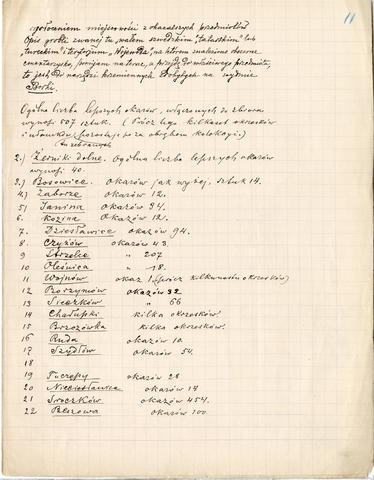 11
ogołoceniem miejscowości z okazalszych przedmiotów
Opis grobli zwanej tu „wałem szwedzkim", tatarskim" lub
tureckim" i terytoryum, „Wojenka", na którem znaleziono obszerne
cmentarzysko, pomijam na teraz, a przejdę do właściwego przedmiotu,
to jest do narzędzi krzemiennych dobytych na wydmie
Borki.
Ogólna liczba lepszych okazów, włączonych do zbioru
wynosi 507 sztuk. (Prócz tego kilkaset okrzesków
i ułamków pozostaje poza obrębem kolekcyi.)
tu zebranych
2.) Żerniki dolne. Ogólna liczba lepszych okazów
wynosi 40.
3.) Bosowice. okazów jak wyżej, sztuk 14.
4.) Zaborze okazów 12.
5) Janina okazów 34.
6. Kozina okazów 12.
7. Dziesławice okazów 94.
8. Czyżów okazów 43
9 Strzelce " 207
10 Oleśnica " 18.
11 Wojnów okaz 1 (prócz kilkunastu okrzesków)
12 Borzymów okazów 32
13 Sieczków " 66
14 Chałupki kilka okrzesków.
15 Brzozówka kilka okrzesków.
16 Ruda okazów 10
17 Szydłów okazów 54.
18
19 Tuczępy okazów 28
20 Nieciesławice okazów 14
21 Sroczków okazów 454.
22 Rzeszowa okazów 100